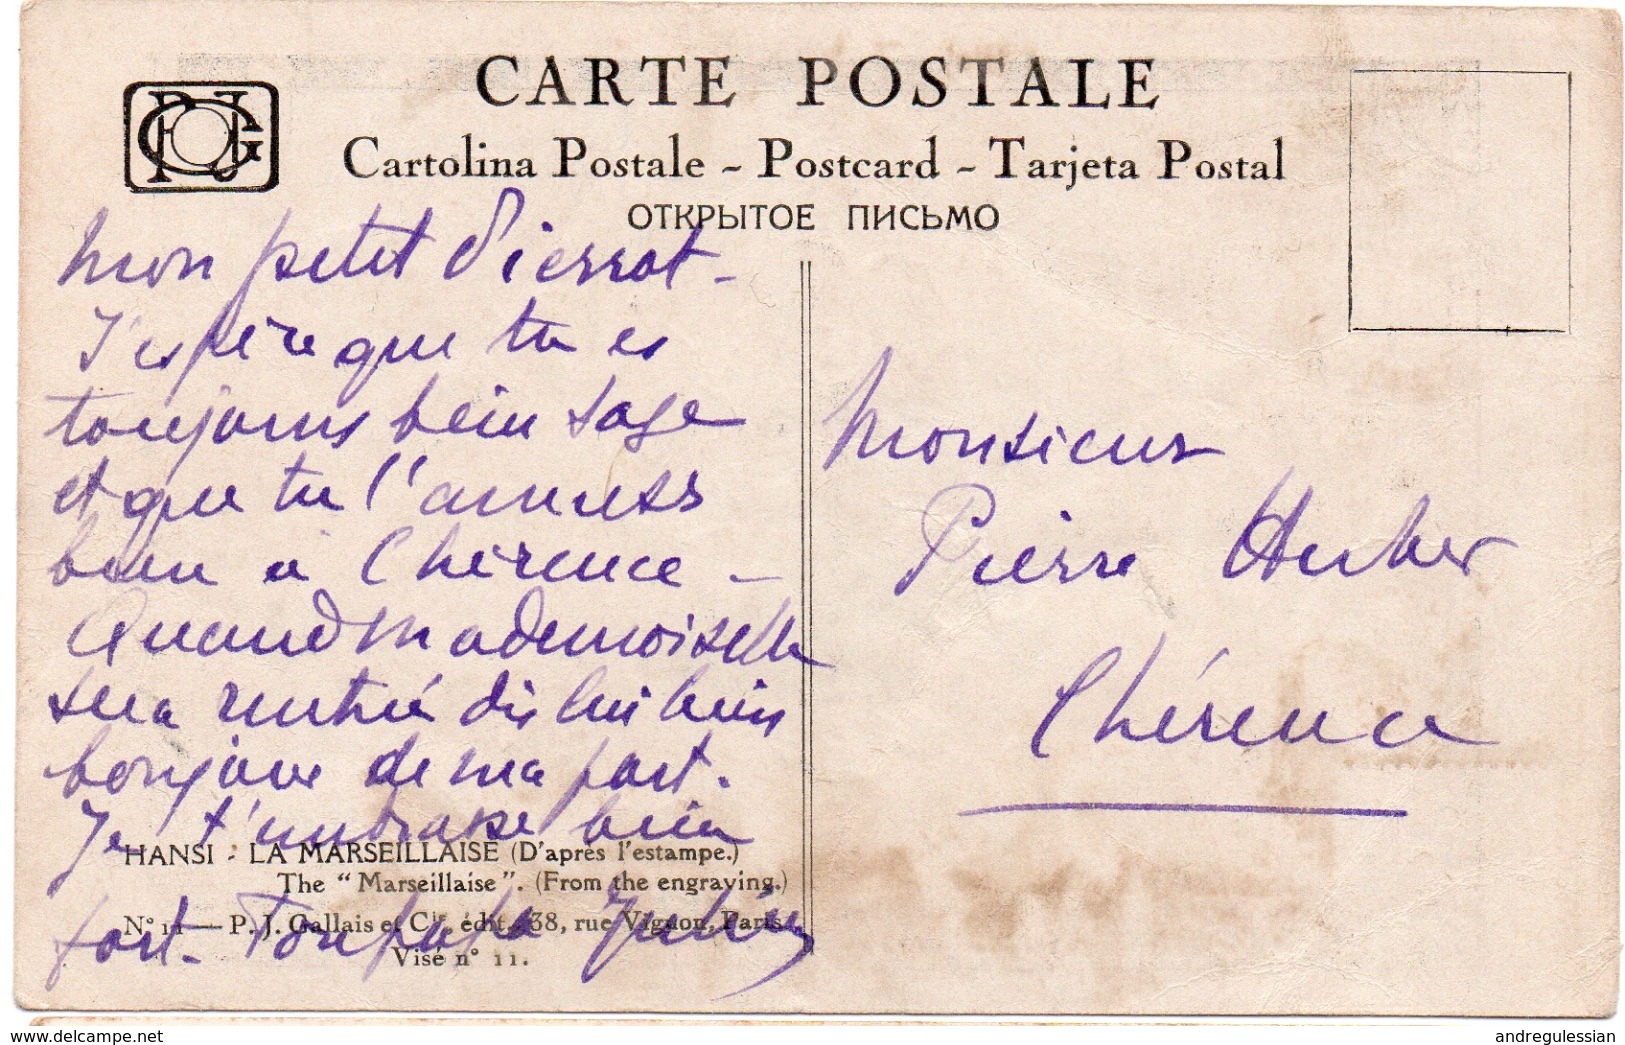 CARTE POSTALE
Cartolina Postale - Postcard - Tarjeta Postal
ОТКРЫТОЕ ПИСЬМО
Mon petit Pierrot -
J'espère que tu es
toujours bein sage
et que tu t'amuses
bien à Chérence -
Quand Mademoiselle
sera rentrée dis lui bien
bonjour de ma part.
Je t'embrasse bien
fort. Ton papa
HANSI - LA MARSEILLAISE (D'après l'estampe.)
The "Marseillaise". (From the engraving.)
N° 11 — P. J. Gallais et Cie, édit., 38, rue Vignon, Paris.
Visé n° 11.
Monsieur
Pierre Huber
Chérence
www.delcampe.net
andregulessian